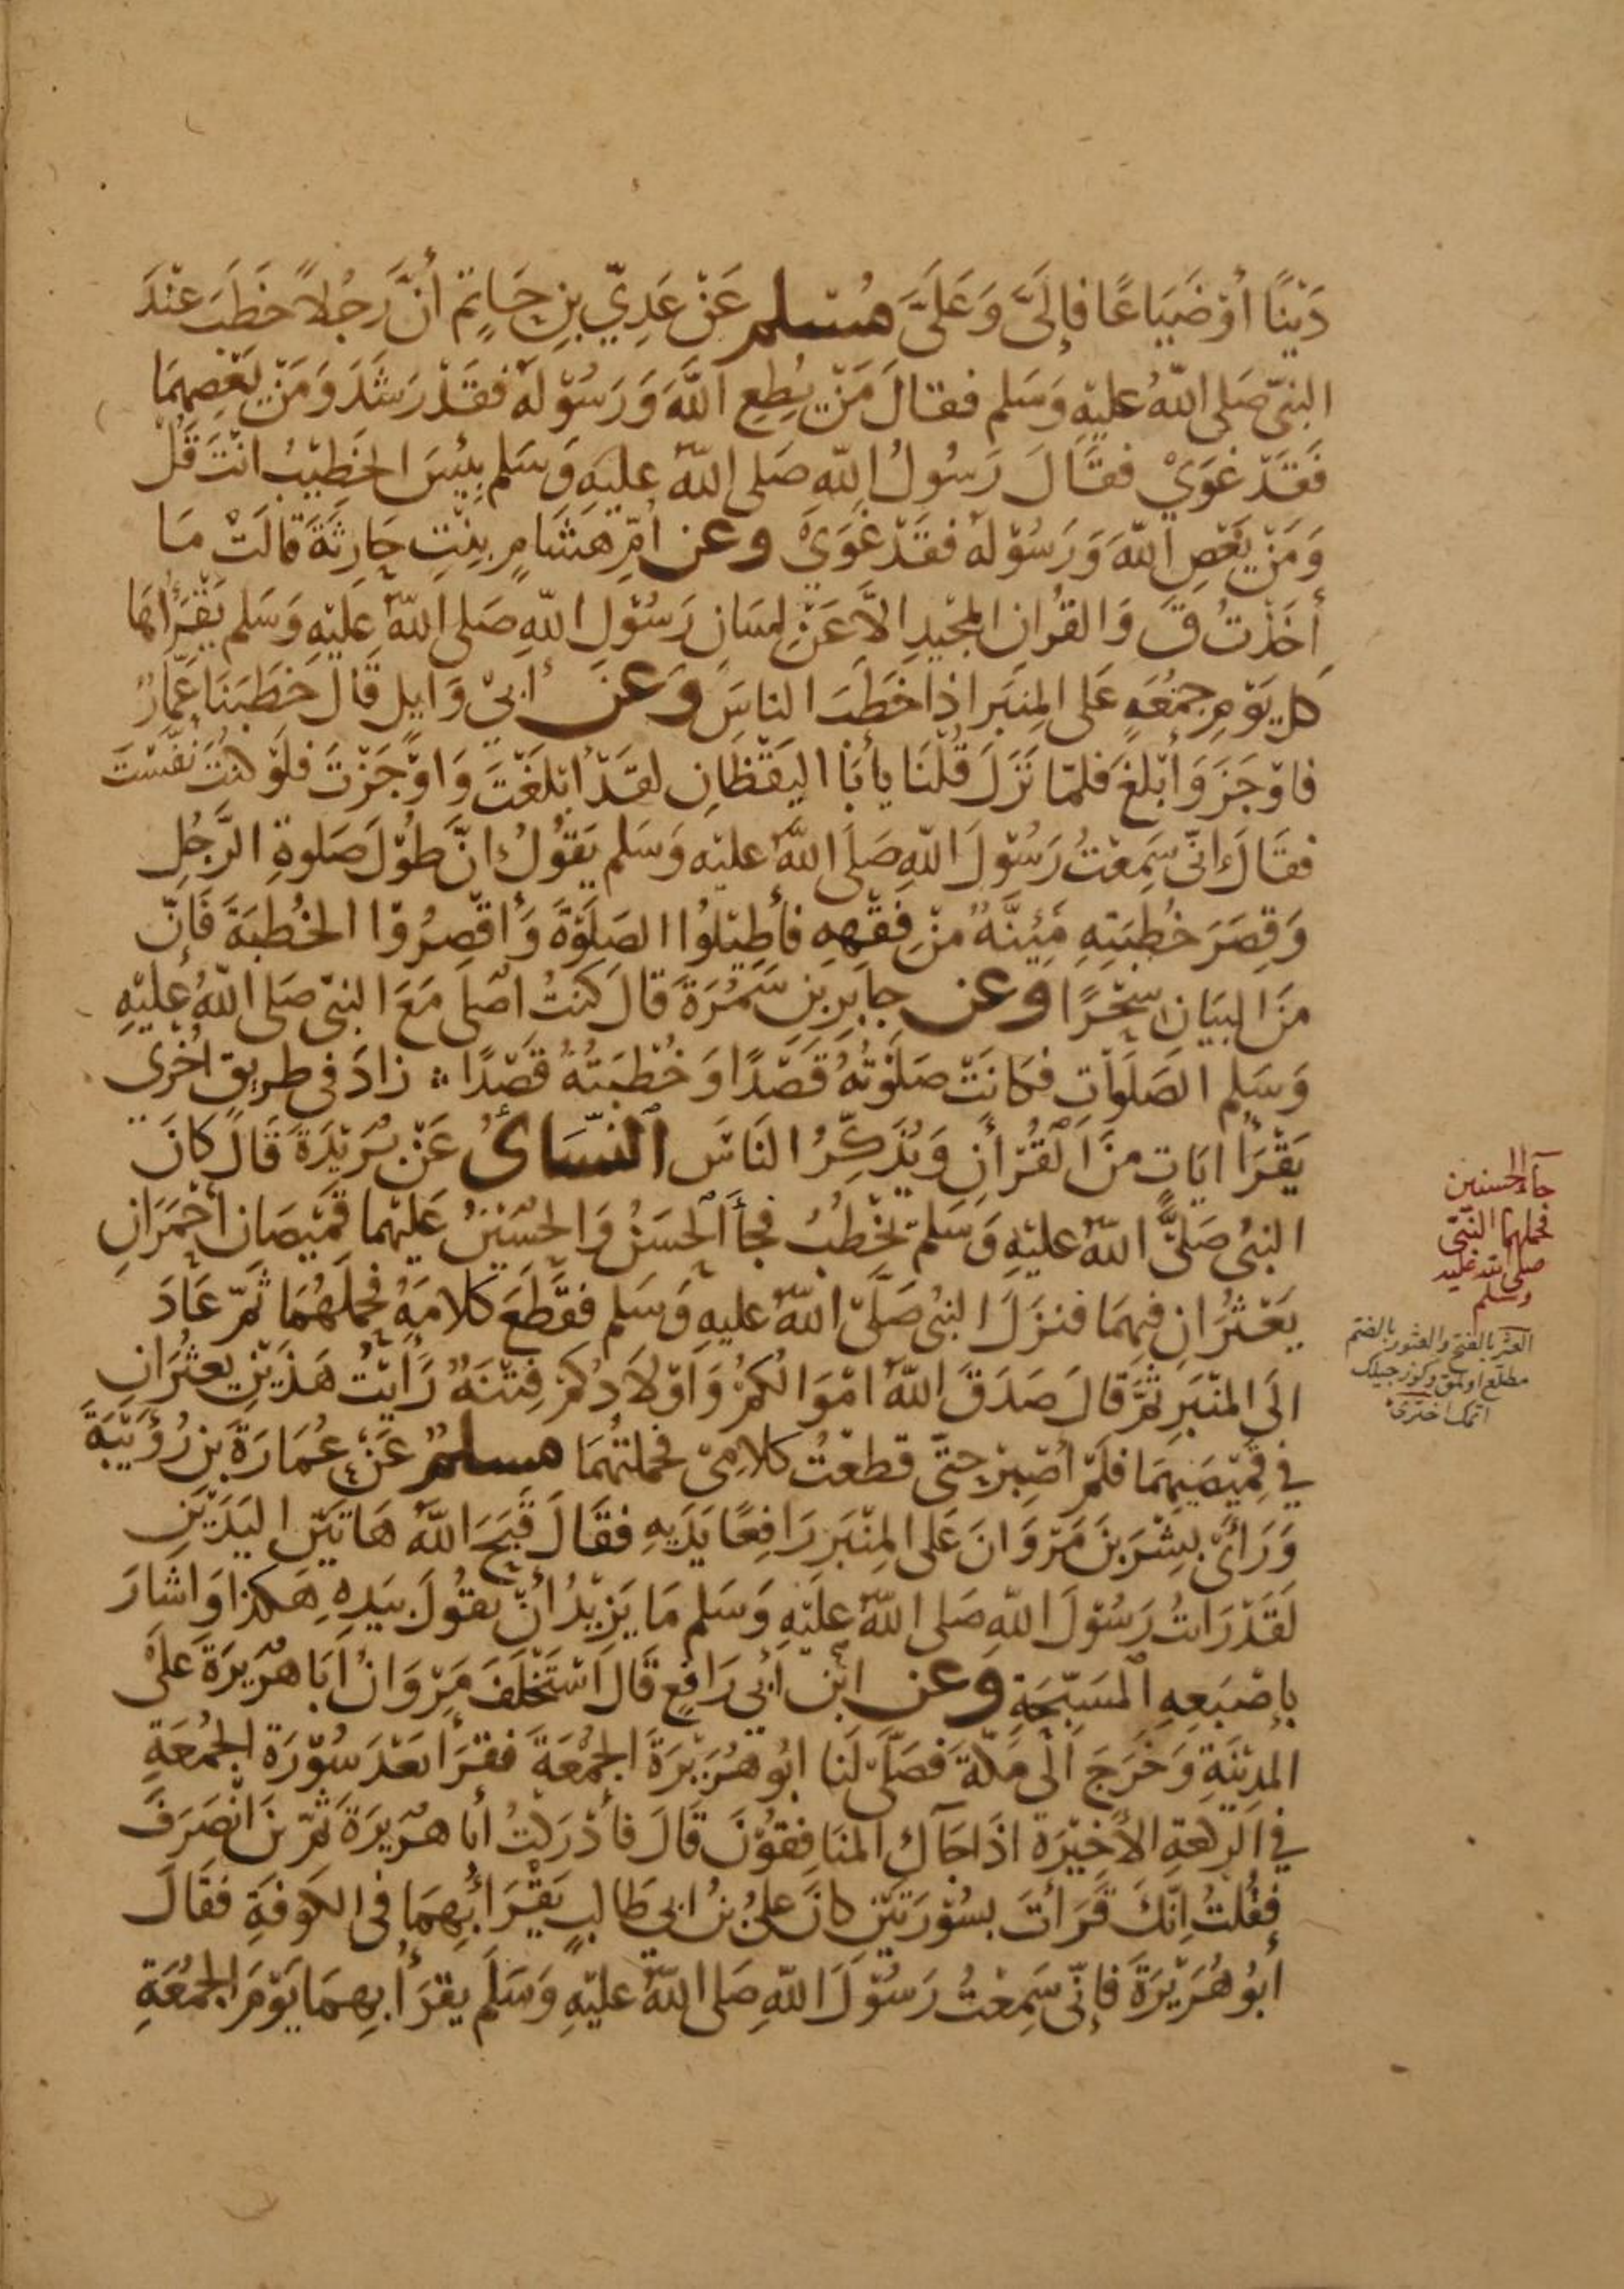 دَيْنًا أَوْ ضَيَاعًا فَإِلَىَّ وَعَلَىَّ مُسْلم عَنْ عَدِيِّ بنِ حَاتِمٍ أَنَّ رَجُلاً خَطَبَ عِنْدَ
النبىّ صَلى اللّٰهُ عليْهِ وَسَلم فقالَ مَنْ يُطِعِ اللّٰهَ وَرَسُوْلَهُ فقَدْ رَشَدَ وَمَنْ يَعْصِهِمَا
فَقَدْ غَوَيْ فقَالَ رَسُولُ اللّٰهِ صَلى اللّٰهُ عليْهِ وَسَلم بِئِسَ الخَطِيْبُ انْتَ قُلْ
وَمَنْ يَعْصِ اللّٰهَ وَرَسُوْلَهُ فقَدْ غَوَيْ وعن أُمِّ هشَامٍ بِنْتِ حَارِثَةَ قَالَتْ مَا
أَخَذْتُ قَ وَالقُرانِ المجْيدِ الاَّ عَنْ لِسَانِ رَسُوْلِ اللّٰهِ صَلى اللّٰهُ عَليْهِ وَسَلم يَقْرَأُهَا
كل يَوْمِ جمُعَةٍ عَلى المِنبَر اذا خَطَبَ الناسَ وعن أبىْ وَايلٍ قَالَ خَطَبَنَا عَمَّارٌ
فاوْجَزَ وَأبْلغَ فَلمّا نَزَلَ قُلْنَا يا أبَا اليَقْظَانِ لقَدْ ابْلغْتَ وَاوْجَزْتَ فلَوْ كنتَ نفّسْتَ
فقَالَ إنّى سَمِعْتُ رَسُوْلَ اللّٰهِ صَلَى اللّٰهُ عليْهِ وَسَلم يَقوُلُ انَّ طُوْلَ صَلوةِ الرَّجُلِ
وَقِصَرَ خُطبَتِهِ مَئِنَّةٌ منْ فِقْهِهِ فأَطِيْلُوا الصَلَوةَ وَأقْصِرُوْا الخُطبَةَ فَإنّ
منَ البَيَانِ سِحْرًا وعن جابِرِ بْنِ سَمُرَةَ قالَ كنتُ أصَلى مَعَ النبىّ صَلى اللّٰهُ عليْهِ
وَسَلم الصَلَوَاتِ فكانَتْ صَلَوتُهُ قَصْدًا وَخُطْبَتُهُ قصْدًا زادَ فى طريق اخْرَى
يَقْرَأُ ايَاتٍ مِنَ الْقُرْأنِ وَيُذَكِّرُ النَاسَ النسَائىُ عَنْ بُرَيْدَةَ قَالَ كانَ
النبىُ صَلىَّ اللّٰهُ عليْهِ وَسَلمَ يخْطبُ فجاَ الحَسَنُ وَالحُسَيْنُ عَليْهما قَميْصَانِ أحْمَرَانِ
يَعْثُرَانِ فيهِمَا فنزَلَ النبىُ صَلَّى اللّٰهُ عليهِ وَسَلم فقطَعَ كَلامَهُ فحمَلَهُمَا ثمّ عَادَ
الَى المنْبَرِ ثمَّ قالَ صَدَقَ اللّٰهُ امْوَالُكمْ وَاوْلَادُكمْ فِتْنَةٌ رَأيْتُ هَذَيْنِ يعثُرَانِ
فِى قميْصَيْهِمَا فلَمْ أصْبِرْ حتّى قطعْتُ كَلامِىْ فحملتهُمَا مسلمٌ عَنْ عُمَارَةَ بنِ رُؤَيْبَةَ
وَرَأىَ بِشْرَ بنَ مَرْوَانَ عَلى المِنبَرِ رَافِعًا يَدَيْهِ فقَالَ قبَحَ اللّٰهُ هَاتيْنِ اليَدَيْنِ
لَقَدْ رَاتُ رَسُوْلَ اللّٰهِ صَلى اللّٰهُ عليْهِ وَسَلم مَا يَزِيْدُ أنْ يقوُلَ بيَدِهِ هَكذا وَاشارَ
بِاِصْبَعِهِ المسَبّحَةِ وعن ابْن أبى رَافعٍ قَالَ اسْتَخْلَفَ مَرْوَانُ ابَا هُرَيرَةَ عَلَىْ
المدِيْنَةِ وَخَرَجَ الَى مَكّةَ فَصَلَّى لَنا ابُو هُرَيْرَةَ الجُمْعَةَ فقرَأ بَعْدَ سُوْرَةِ الجُمُعَةِ
فى الرّكعةِ الأخيْرَة اذَا جَآكَ المنَافِقوُنَ قَالَ فَأدْرَكتُ أبا هُرَيْرَةَ ثمّ نَ انْصَرَفَ
فقُلتُ انّكَ قَرَأتَ بسُوْرَتَيْنِ كانَ عَلىُ بْنُ ابى طَالبٍ يَقْرَأُ بِهِمَا فى الكوْفَةِ فقَالَ
أبُوْ هُرَيْرَةَ فإِنّى سَمِعْتُ رَسُوْلَ اللّٰهِ صَلى اللّٰهُ عليْهِ وَسَلَم يقْرَأُ بِهِمَا يَوْمَ الجُمُعَةِ
جآء الحسنين
فحملهما النّبىّ
صلى اللّه عليه
وسلم
العثر بالفتح والعثور بالضم